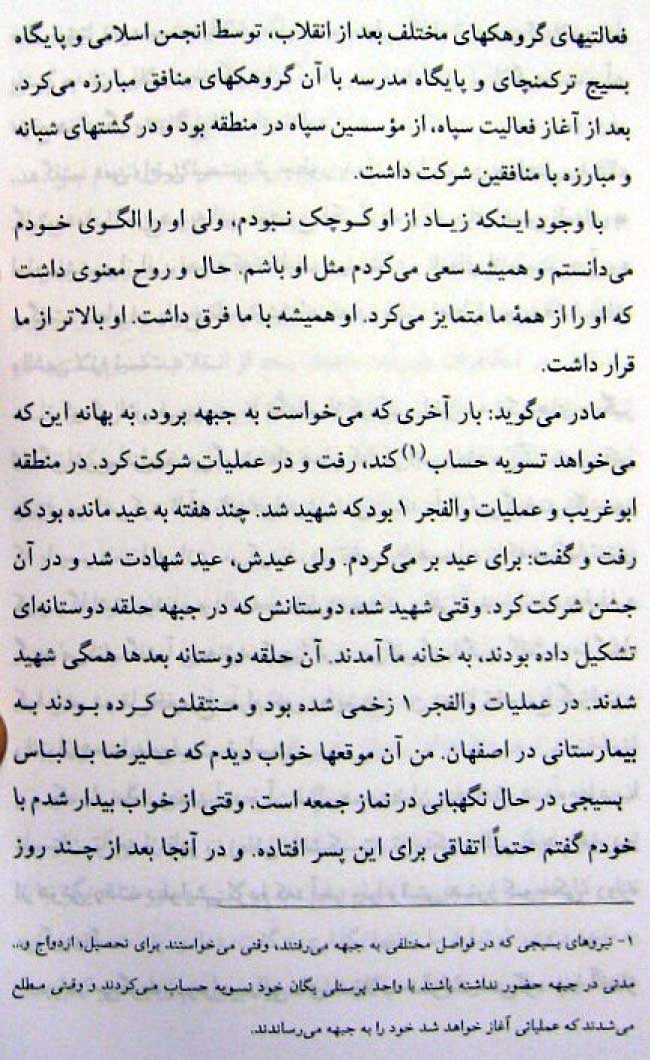 فعالتیهای گروهکهای مختلف بعد از انقلاب، توسط انجمن اسلامی و پایگاه
بسیج ترکمنچای و پایگاه مدرسه با آن گروهکهای منافق مبارزه می‌کرد.
بعد از آغاز فعالیت سپاه، از مؤسسین سپاه در منطقه بود و در گشتهای شبانه
و مبارزه با منافقین شرکت داشت.
با وجود اینکه زیاد از او کوچک نبودم، ولی او را الگوی خودم
می‌دانستم و همیشه سعی می‌کردم مثل او باشم. حال و روح معنوی داشت
که او را از همهٔ ما متمایز می‌کرد. او همیشه با ما فرق داشت. او بالاتر از ما
قرار داشت.
مادر می‌گوید: بار آخری که می‌خواست به جبهه برود، به بهانه این که
می‌خواهد تسویه حساب(۱) کند، رفت و در عملیات شرکت کرد. در منطقه
ابوغریب و عملیات والفجر ۱ بود که شهید شد. چند هفته به عید مانده بود که
رفت و گفت: برای عید بر می‌گردم. ولی عیدش، عید شهادت شد و در آن
جشن شرکت کرد. وقتی شهید شد، دوستانش که در جبهه حلقه دوستانه‌ای
تشکیل داده بودند، به خانه ما آمدند. آن حلقه دوستانه بعدها همگی شهید
شدند. در عملیات والفجر ۱ زخمی شده بود و منتقلش کرده بودند به
بیمارستانی در اصفهان. من آن موقعها خواب دیدم که علیرضا با لباس
بسیجی در حال نگهبانی در نماز جمعه است. وقتی از خواب بیدار شدم با
خودم گفتم حتماً اتفاقی برای این پسر افتاده. و در آنجا بعد از چند روز
۱- نیروهای بسیجی که در فواصل مختلفی به جبهه می‌رفتند، وقتی می‌خواستند برای تحصیل، ازدواج و...
مدتی در جبهه حضور نداشته باشند با واحد پرسنلی یگان خود تسویه حساب می‌کردند و وقتی مطلع
می‌شدند که عملیاتی آغاز خواهد شد خود را به جبهه می‌رساندند.